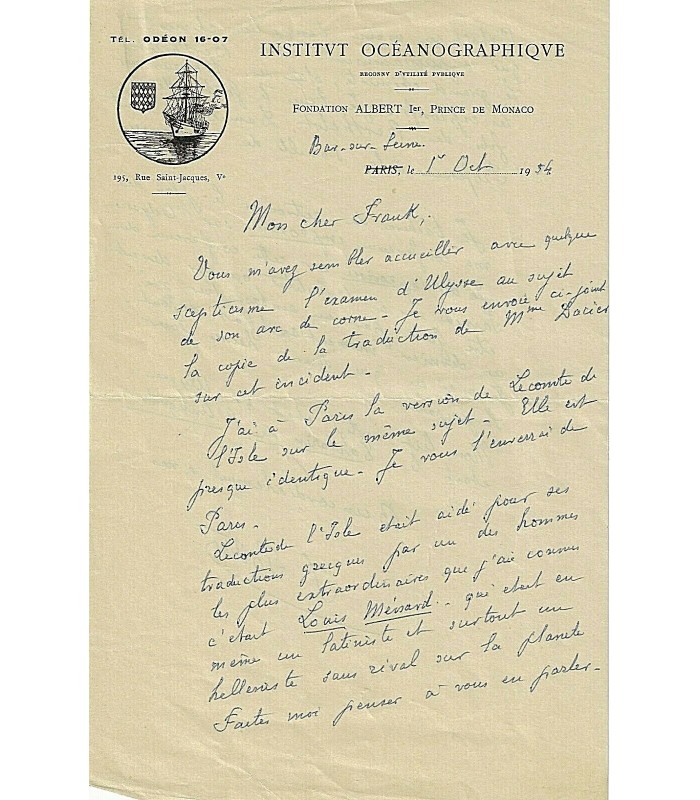 TÉL. ODÉON 16-07
INSTITVT OCÉANOGRAPHIQVE
RECONNV D'VTILITÉ PVBLIQVE
FONDATION ALBERT Ier, PRINCE DE MONACO
195, Rue Saint-Jacques, Ve
Bar-sur-Seine.
PARIS, le 1er Oct 1954
Mon cher Frank,
Vous m'avez sembler accueillir avec quelque
scepticisme l'examen d'Ulysse au sujet
de son arc de corne - Je vous envoie ci-joint
la copie de la traduction de Mme Dacier
sur cet incident -
J'ai à Paris la version de Lecomte de
l'Isle sur le même sujet - Elle est
presque identique - Je vous l'enverrai de
Paris -
Lecomte de l'Isle etait aidé pour ses
traductions grecques par un des hommes
les plus extraordinaires que j'aie connus
c'etait Louis Ménard - qui etait en
même un latiniste et surtout un
helleniste sans rival sur la planete
Faites moi penser à vous en parler -